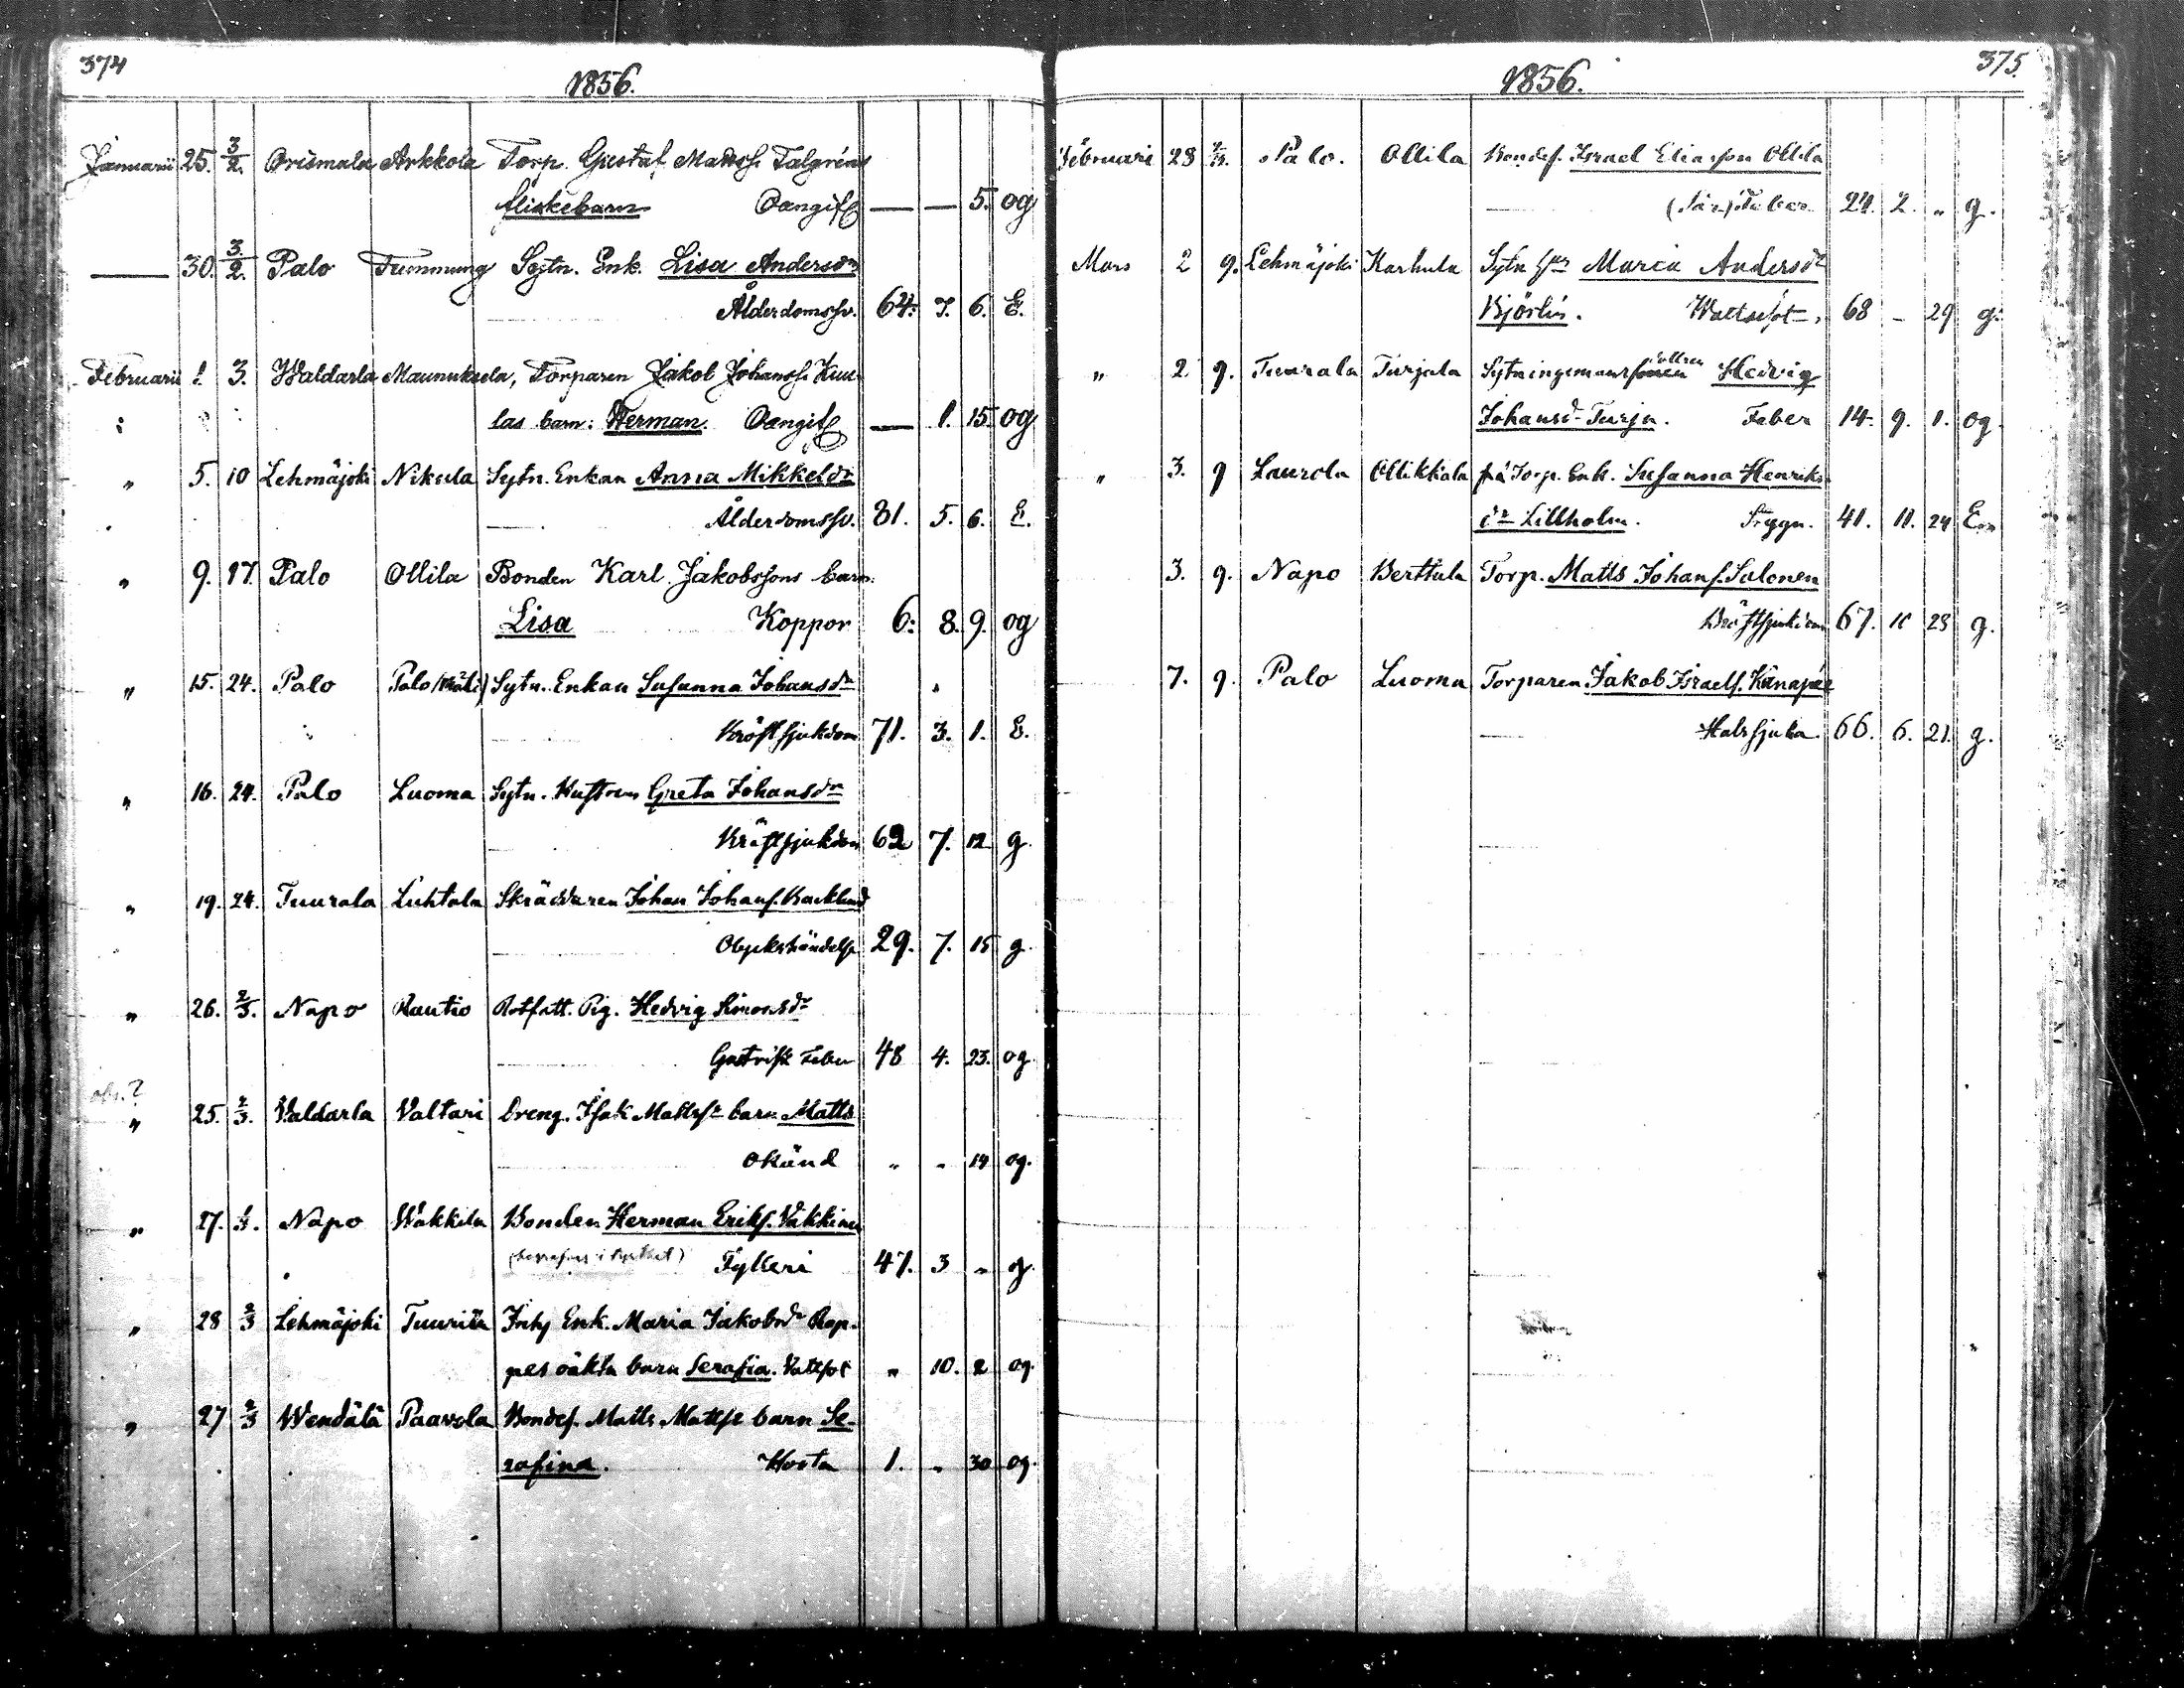 374
1856.
Januarii 25. 3/2. Orismala Arkkola Torp. Gustaf Mattss. Talgréns
flickebarn Oangif. — — 5. og
— 30. 3/2. Palo Tummung Sytn. Enk. Lisa Andersdr
Ålderdomssv. 64. 7. 6. E.
Februarii 1. 3. Waldarla Maunuksela, Torparen Jakob Johanss. Kuu-
las barn: Herman. Oangif. — 1. 15. og
" 5. 10 Lehmäjoki Nikula Sytn. Enkan Anna Mikkelsdr
Ålderdomssv. 81. 5. 6. E.
" 9. 17. Palo Ollila Bonden Karl Jakobssons barn
Lisa Koppor 6. 8. 9. og
" 15. 24. Palo Palo Sytn. Enkan Susanna Johansdr
Kräftsjukdom 71. 3. 1. E.
" 16. 24. Palo Luoma Sytn. Hustrun Greta Johansdr
Kräftsjukdom 62 7. 12 g.
" 19. 24. Tuurala Luhtala Skräddaren Johan Johans. Backlund
Olyckshändelse 29. 7. 15 g.
" 26. 2/3. Napo Rautio Rotfatt. Pig. Hedvig Simonsdr
Gastrisk Feber 48 4. 23. og
obs.?
" 25. 2/3. Valdarla Valtari Dreng. Isak Mattss. barn Matts
Okänd " " 14 og.
" 27. Napo Wakkila Bonden Herman Eriks. Vakkinen
Fylleri 47. 3 " g.
" 28 2/3 Lehmäjoki Tuurila Inhs Enk. Maria Jakobsdr Rop-
pes oäkta barn Serafia. Vattsot " 10. 2 og.
" 27 2/3 Wendälä Paavola Bondes. Matts Mattss. barn Se-
rafina. Hosta 1. " 30 og.
1856.
375.
Februari 28 Palo. Ollila Bondes. Israel Eliasson Ollila
Feber 24. 2. " g.
Mars 2 9. Lehmäjoki Karhula Sytn Maria Andersdr
Björlin. Wattusot 68 - 29 g.
" 2. 9. Tuurala Turjala Sytningsmans dottren Hedvig
Johansdr Turja. Feber 14. 9. 1. og.
" 3. 9 Laurola Ollikkala Torp. Enk. Susanna Henriks-
dr Lillholm. Stygn. 41. 11. 24 E.
3. 9. Napo Berttula Torp. Matts Johans. Salonen
Bröstsjukdom 67. 10 28 g.
7. 9. Palo Luoma Torparen Jakob Israels. Känapää
Halssjuka. 66. 6. 21. g.